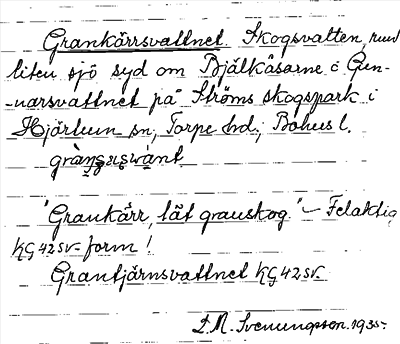 Grankärrsvattnet. Skogsvatten, rund
liten sjö syd om Bjälkåsarne o Gun-
-narsvattnet på Ströms skogspark i
Hjärtum sn, Torpe hd., Bohus l.
"Grankärr, tät granskog." – Felaktig
KG42sv-form!
Grantjärnsvattnet KG42sv.
1935.